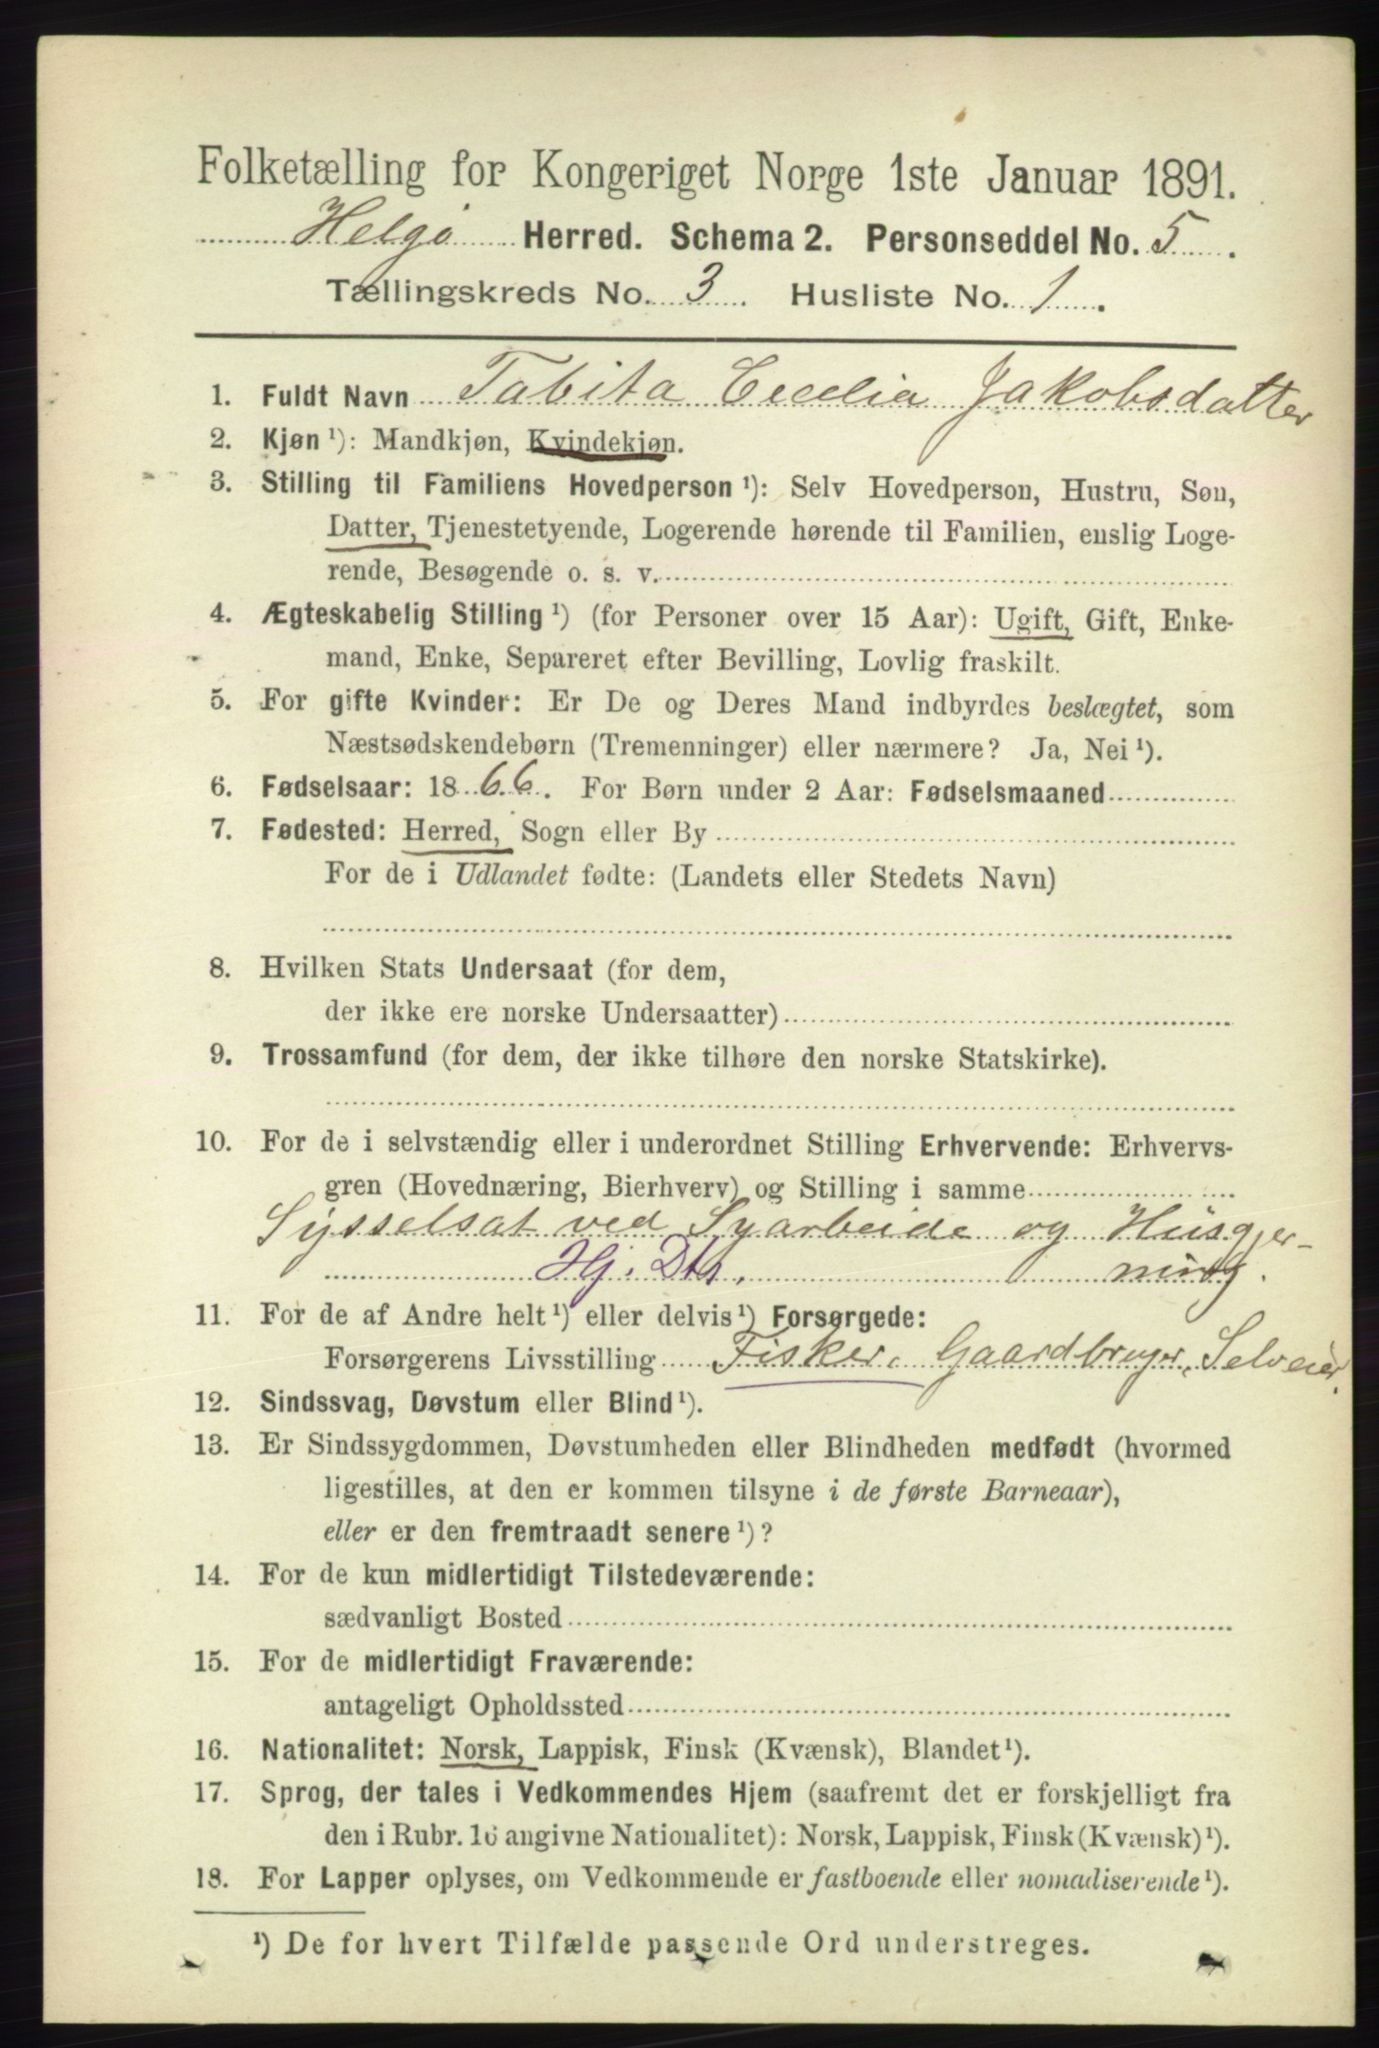 Folketælling for Kongeriget Norge 1ste Januar 1891.
Helgø Herred. Schema 2. Personseddel No. 5.
Tællingskreds No. 3. Husliste No. 1.
1. Fuldt Navn Tabita Cecelia Jakobsdatter
2. Kjøn ¹): Mandkjøn, Kvindekjøn.
3. Stilling til Familiens Hovedperson ¹): Selv Hovedperson, Hustru, Søn,
Datter, Tjenestetyende, Logerende hørende til Familien, enslig Loge-
rende, Besøgende o. s. v.
4. Ægteskabelig Stilling ¹) (for Personer over 15 Aar): Ugift, Gift, Enke-
mand, Enke, Separeret efter Bevilling, Lovlig fraskilt.
5. For gifte Kvinder: Er De og Deres Mand indbyrdes beslægtet, som
Næstsødskendebørn (Tremenninger) eller nærmere? Ja, Nei ¹).
6. Fødselsaar: 1866. For Børn under 2 Aar: Fødselsmaaned
7. Fødested: Herred, Sogn eller By
For de i Udlandet fødte: (Landets eller Stedets Navn)
8. Hvilken Stats Undersaat (for dem,
der ikke ere norske Undersaatter)
9. Trossamfund (for dem, der ikke tilhøre den norske Statskirke).
10. For de i selvstændig eller i underordnet Stilling Erhvervende: Erhvervs-
gren (Hovednæring, Bierhverv) og Stilling i samme
Sysselsat ved Syarbeide og Husgjer-
Hj. Dtr. ning.
11. For de af Andre helt ¹) eller delvis ¹) Forsørgede:
Forsørgerens Livsstilling Fisker, Gaardbruger, Selveier.
12. Sindssvag, Døvstum eller Blind ¹).
13. Er Sindssygdommen, Døvstumheden eller Blindheden medfødt (hvormed
ligestilles, at den er kommen tilsyne i de første Barneaar),
eller er den fremtraadt senere ¹)?
14. For de kun midlertidigt Tilstedeværende:
sædvanligt Bosted
15. For de midlertidigt Fraværende:
antageligt Opholdssted
16. Nationalitet: Norsk, Lappisk, Finsk (Kvænsk), Blandet ¹).
17. Sprog, der tales i Vedkommendes Hjem (saafremt det er forskjelligt fra
den i Rubr. 16 angivne Nationalitet): Norsk, Lappisk, Finsk (Kvænsk) ¹).
18. For Lapper oplyses, om Vedkommende er fastboende eller nomadiserende ¹).
¹) De for hvert Tilfælde passende Ord understreges.